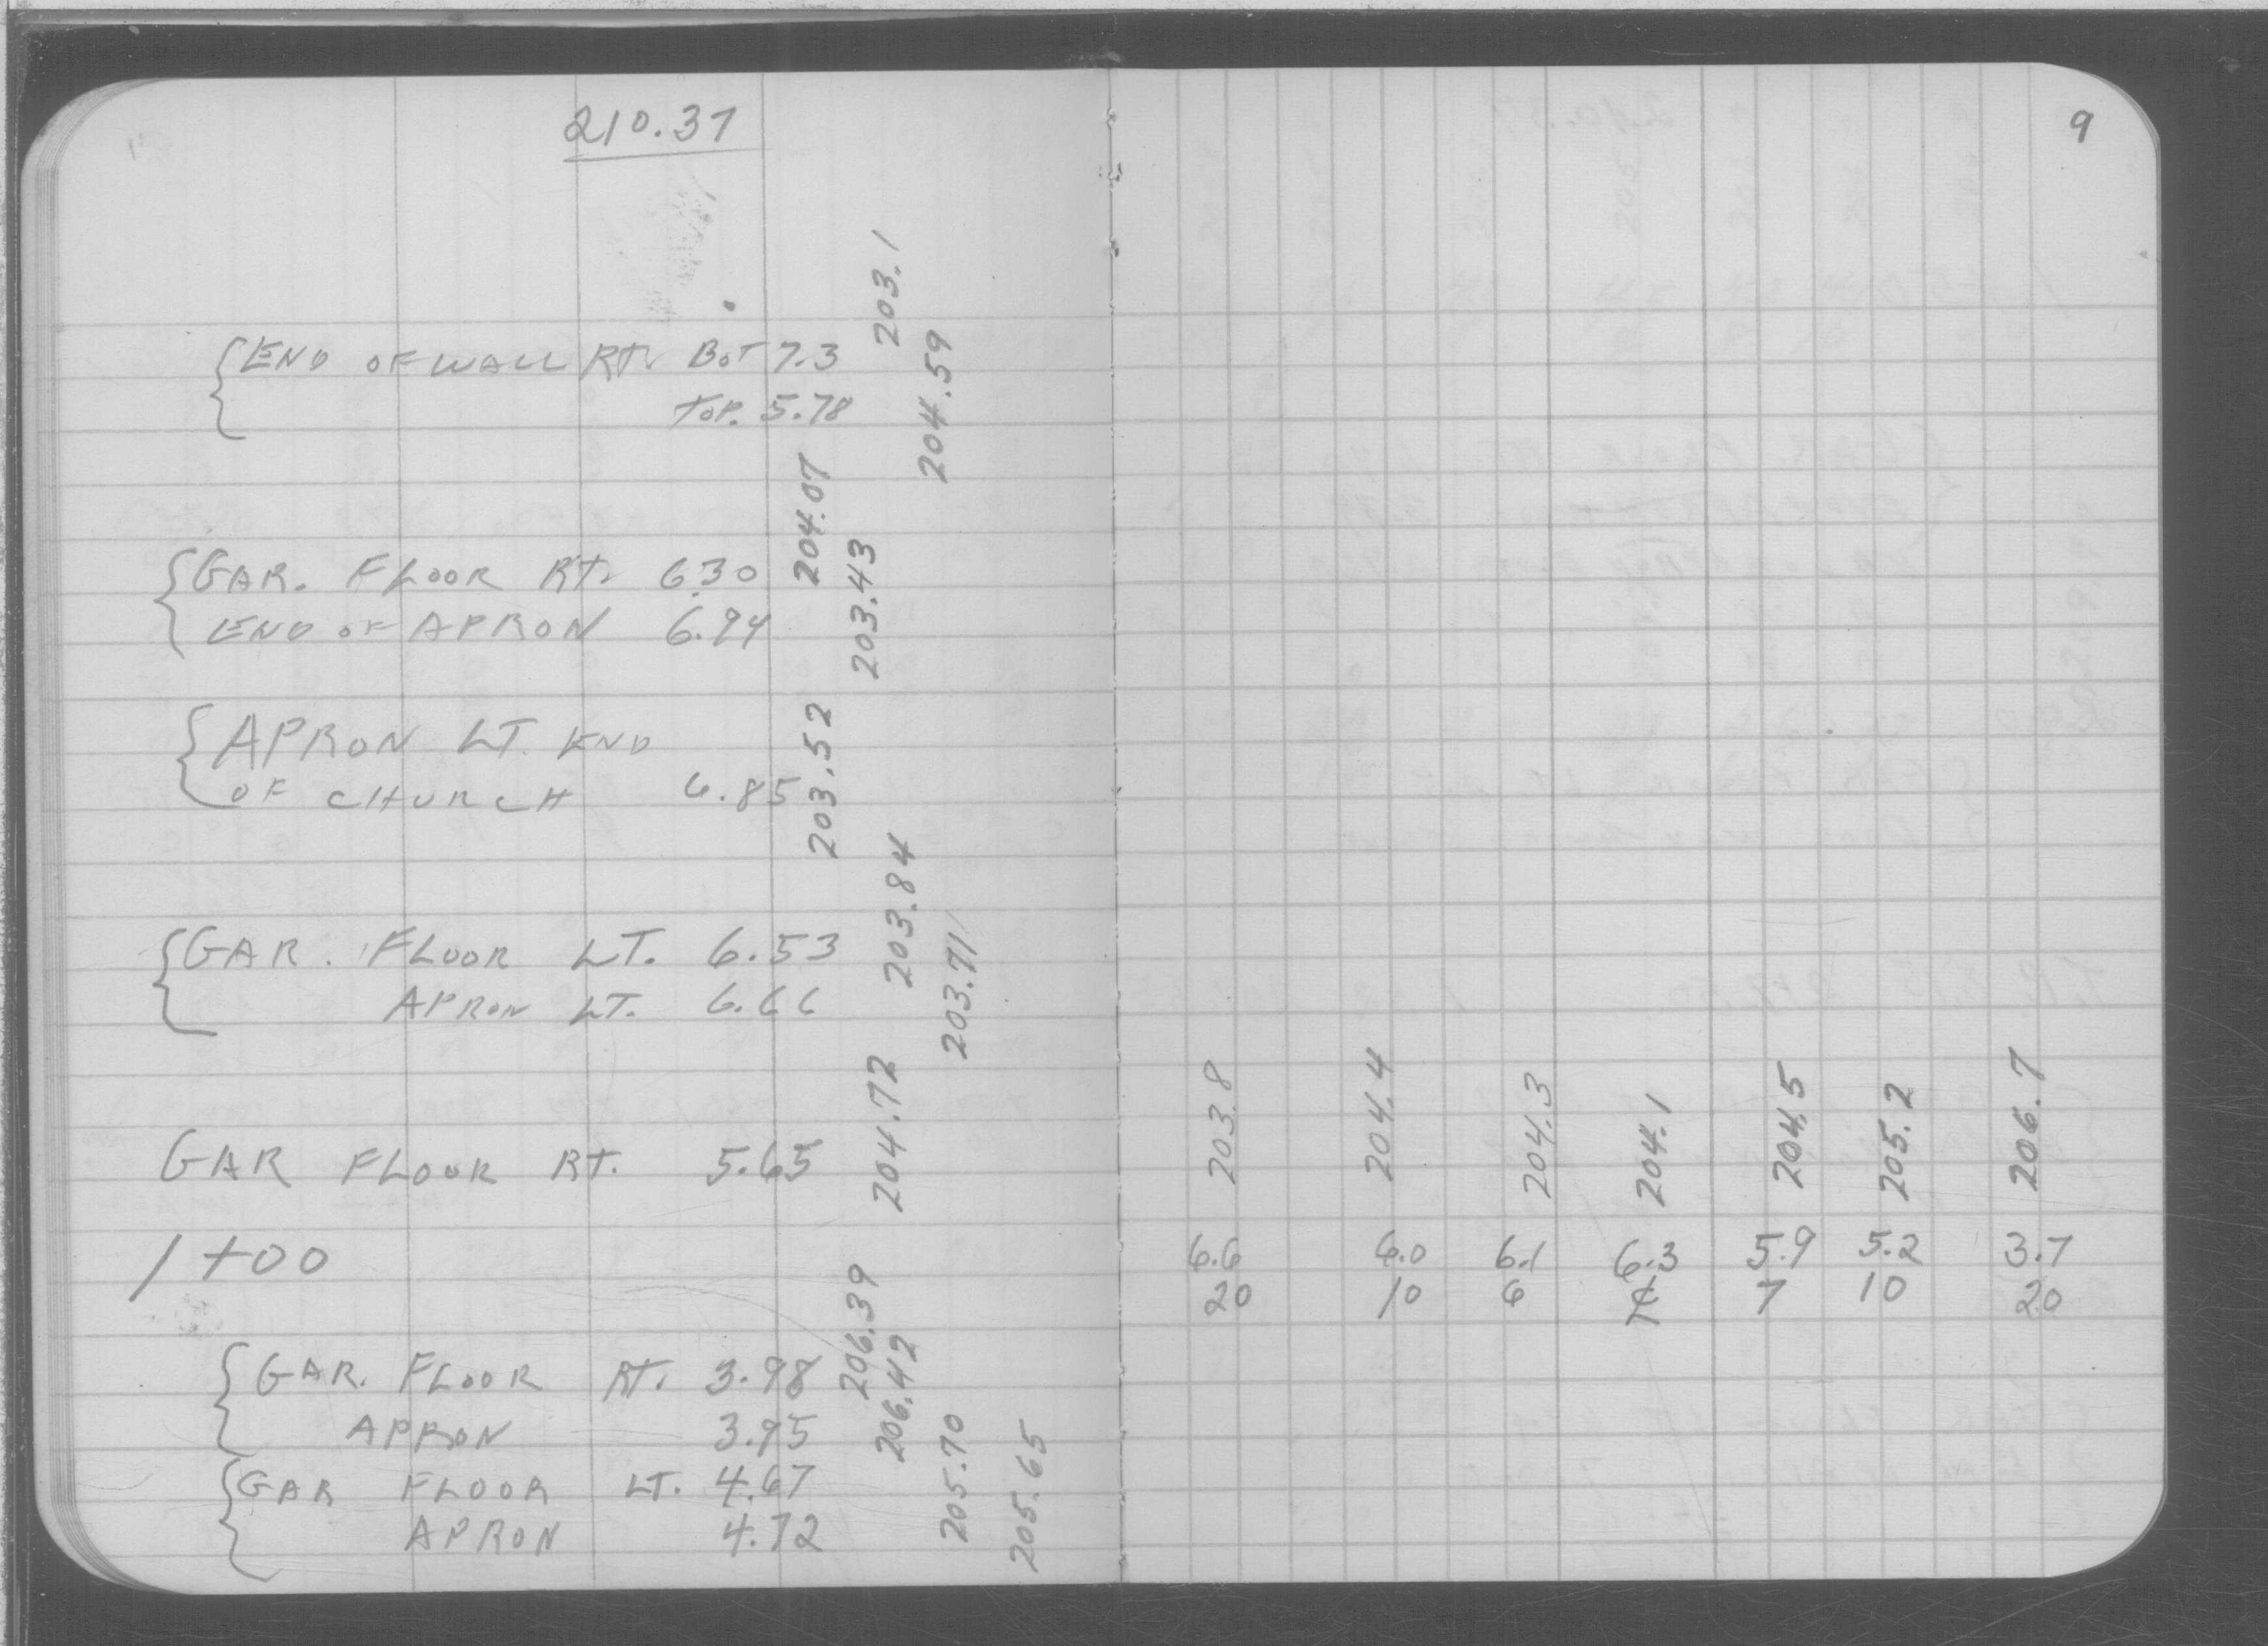 210.37
9
{END OF WALL RT. BOT 7.3 203.1
TOP. 5.78 204.59
{GAR. FLOOR RT. 6.30 204.07
END OF APRON 6.94 203.43
{APRON LT. END
OF CHURCH 6.85 203.52
{GAR. FLOOR LT. 6.53 203.84
APRON LT. 6.66 203.71
GAR FLOOR RT. 5.65 204.72
203.8 204.4 204.3 204.1 204.5 205.2 206.7
1+00 6.6 6.0 6.1 6.3 5.9 5.2 3.7
20 10 6 ℄ 7 10 20
{GAR. FLOOR RT. 3.98 206.39
APRON 3.95 206.42
{GAR FLOOR LT. 4.67 205.70
APRON 4.72 205.65